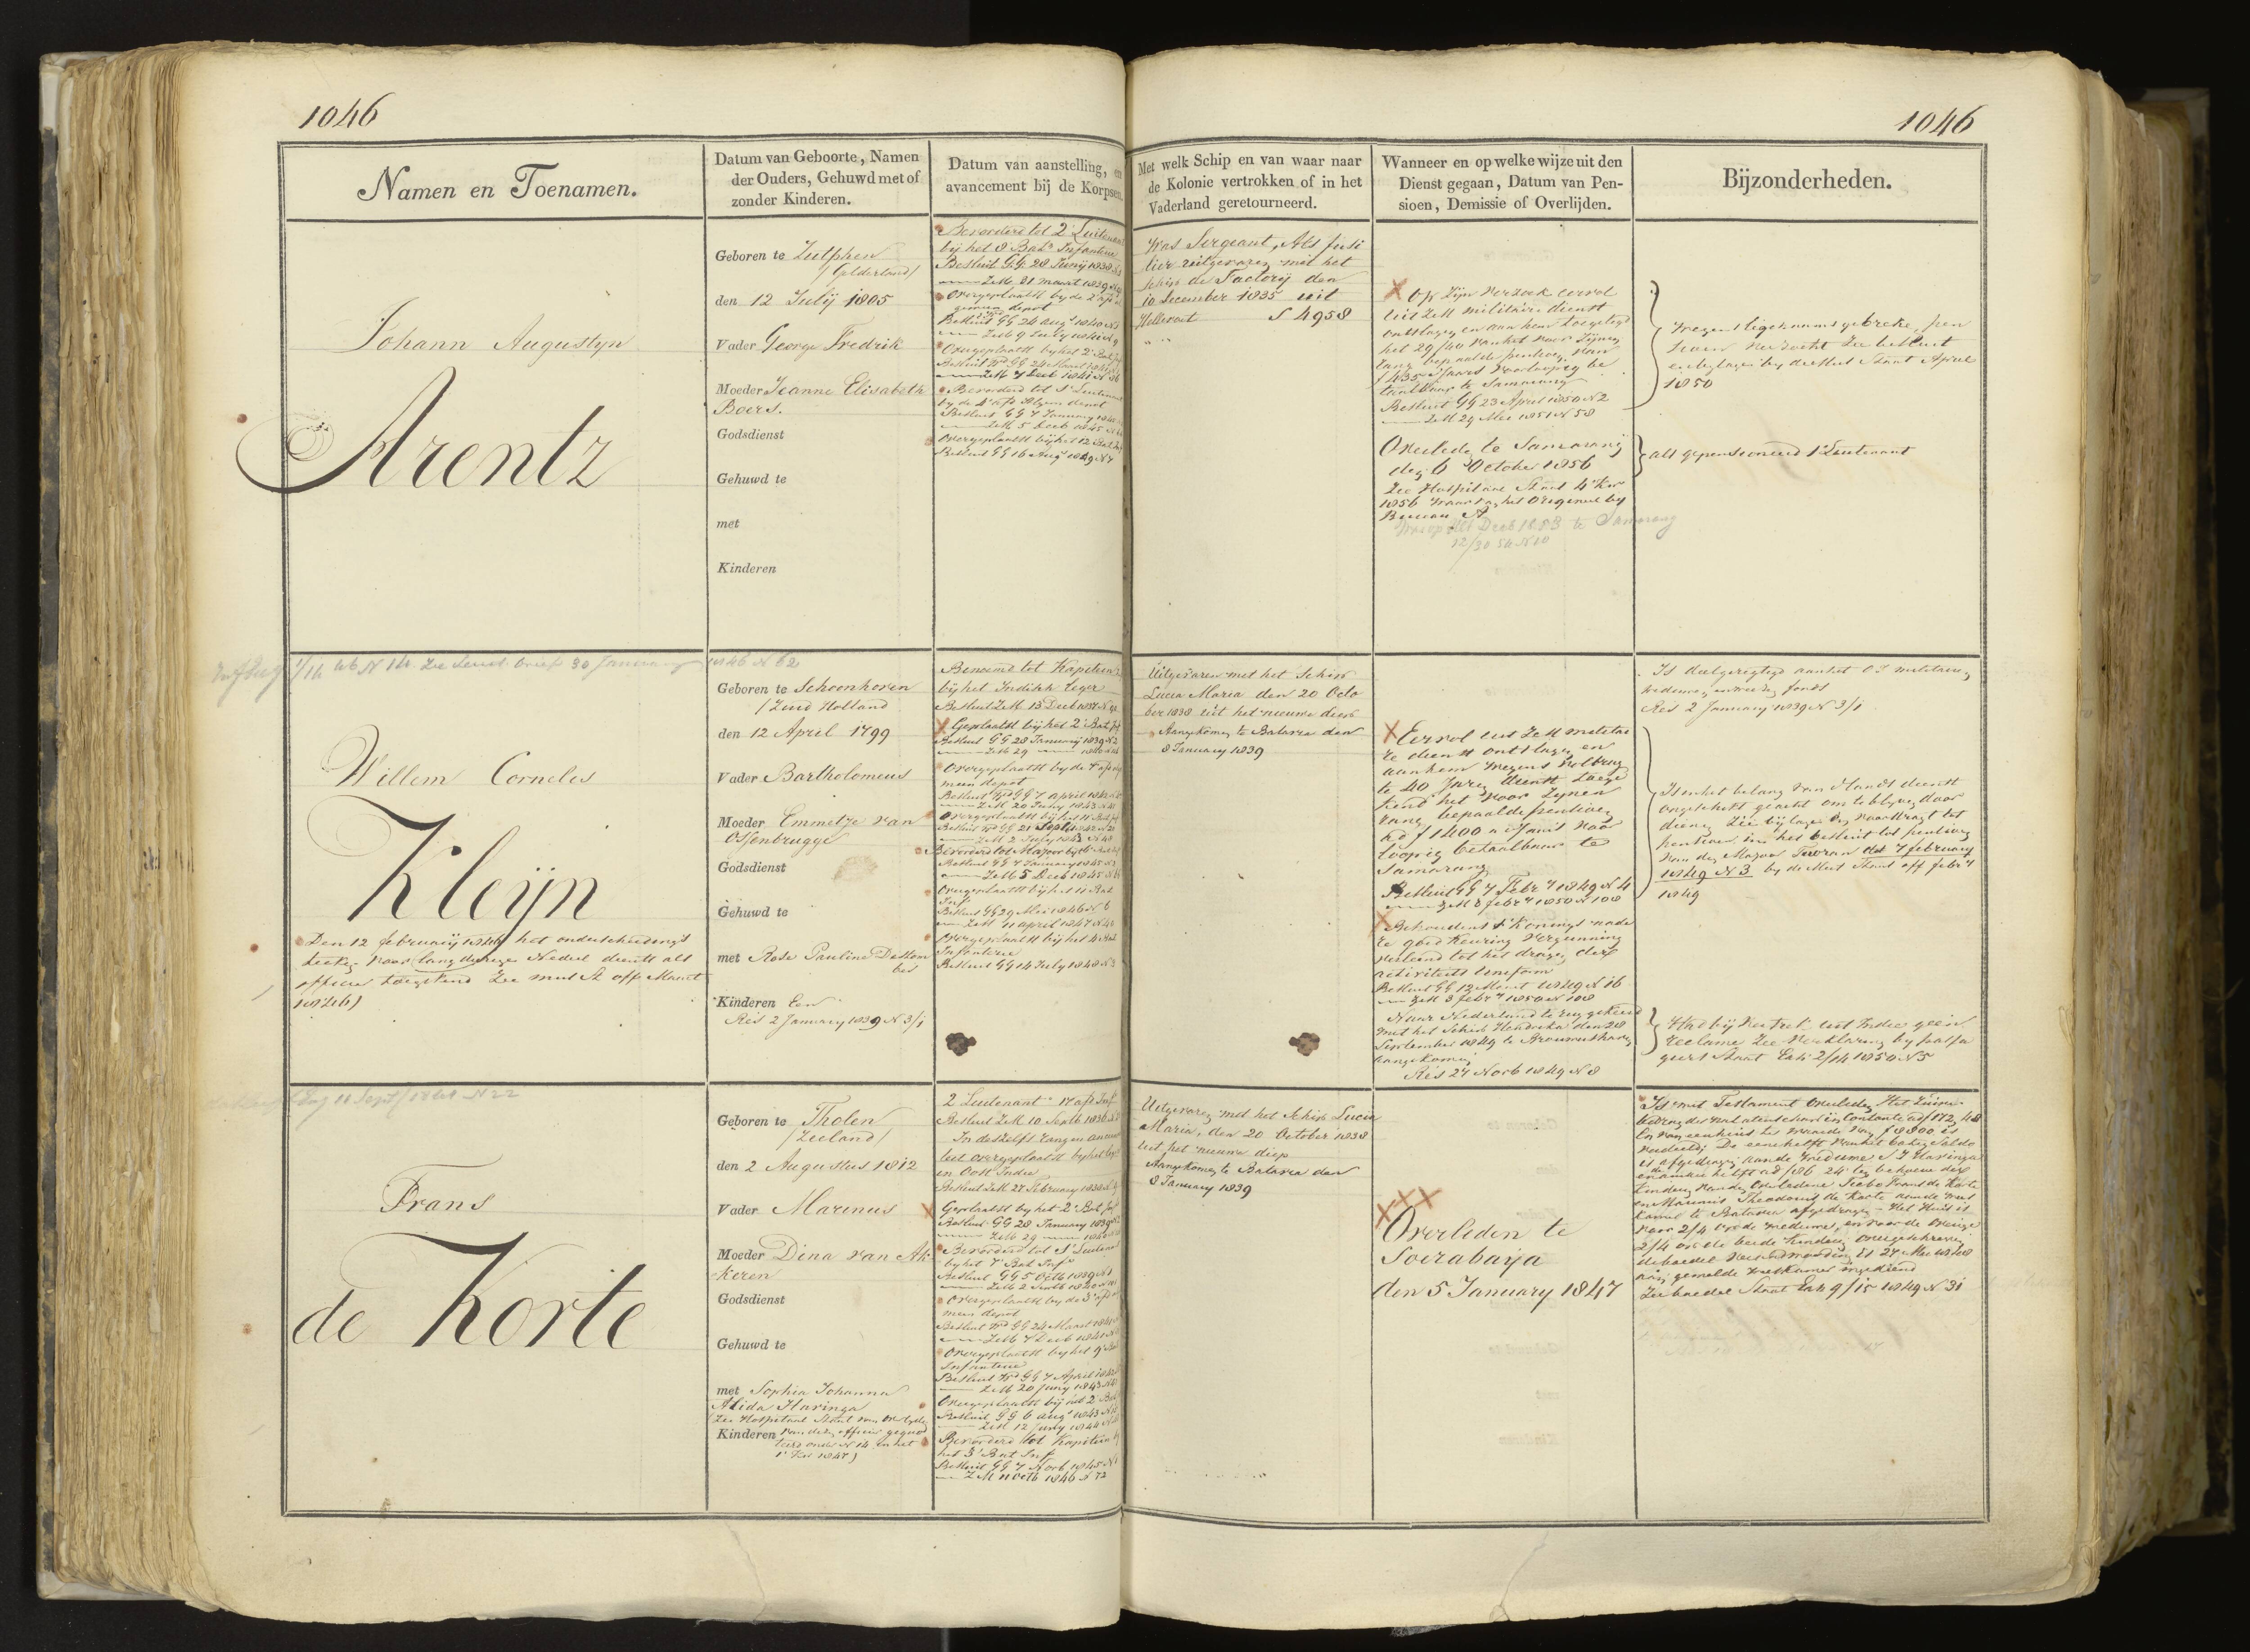 1046
1046
Namen en Toenamen.
Datum van Geboorte, Namen
der Ouders, Gehuwd met of
zonder Kinderen.
Datum van aanstelling, en
avancement bij de Korpsen.
Met welk Schip en van waar naar
de Kolonie vertrokken of in het
Vaderland geretourneerd.
Wanneer en op welke wijze uit den
Dienst gegaan, Datum van Pen-
sioen, Demissie of Overlijden.
Bijzonderheden.
Johann Augustyn
Arentz
Geboren te Zutphen
/Gelderland/
den 12 Julij 1805
Vader George Fredrik
Moeder Jeanne Elisabeth
Boers.
Godsdienst
Gehuwd te
met
Kinderen
Bevorderd tot 2e Luitenant
bij het 8 Bat Infanterie
Besluit G.G. 28 Junij 1838
ZeM 21 maart 1839
Overgeplaatst by de
depot
Besluit GG 24 Augs 1840
ZeM 9 July 1841
Overgeplaatst by het 2 Bat Inf
Besluit GG 24 Maart 1841
ZeM 7 Decb 1841
Bevorderd tot 1e Luitenant
by de 4e depot
Besluit GG 7 January
ZeM 5 Decb 1845
Overgeplaatst bij het 12 Bat Inf
Besluit GG 16 Augs 1849 N 7
Was Sergeant, Als fusi
lier uitgevaren met het
schip de Factorij den
10 December 1835 uit
Hellevoet S 4958
Op zijn verzoek eervol
uit ZeM militaire dienst
ontslagen en aan hem toegelegd
het 29/40 van het voor zijnen
rang bepaalde pensioen van
f 435 's Jaars voorloopig be
taalbaar te Samarang
Besluit GG 23 April 1850 N 2
ZeM 29 Mei 1851 N 58
Overleden te Samarang
den 6 October 1856
Zie Hospitaal Staat 4e Kw
1856 waarvan het origineel by
Bureau A
Decb 1853 te Samarang
12/30 54 N 18
Wegens ligchaams gebreke pen
sioen verzocht Zie besluit
en bylagen by besluit Staat April
1850
als gepensioneerd 1e Luitenant
Zie brief 30 January 1846 N 62
Willem Cornelis
Kleijn
Den 12 february 1846 het onderscheidings
teeken voor langdurige Nederl dienst als
officier toegekend Zie mut St off Maart
1846)
Geboren te Schoonhoven
/Zuid Holland
den 12 April 1799
Vader Bartholomeus
Moeder Emmetje van
Ossenbrugge
Godsdienst
Gehuwd te
met Rose Pauline Destom
bes
Kinderen Een
Res 2 January 1839 N 3/1
Benoemd tot Kapitein
bij het Indisch Leger
Besluit ZeM 15 Decb 1837
Geplaatst bij het 2e Bat Inf
Besluit GG 28 January 1839 N 2
ZeM 29 1840
Overgeplaatst by de 7e
depot
Besluit GG 7 April 1842
ZeM 20 Juny 1843
Overgeplaatst bij het 11 Bat Inf
Besluit GG 21 Sept 1842 N 21
ZeM 2 July 1843 N 48
Bevorderd tot Majoor bij
Besluit GG 7 January 1845
ZeM 5 Decb 1845
Overgeplaatst bij het 11 Bat
Inf
Besluit GG 29 Mei 1846 N 6
ZeM 11 April 1847
Overgeplaatst bij het 4 Bat
Infanterie
Besluit GG 14 July 1848 N 3
Uitgevaren met het Schip
Lucia Maria den 20 Octo
ber 1838 uit het nieuwe diep
Aangekomen te Batavia den
8 January 1839
Eervol uit ZeM militai
re dienst ontslagen en
aan hem wegens volbrag
te 40 Jaren dienst toege
kend het voor zynen
rang bepaalde pensioen
ad f 1400 's Jaars voor
loopig betaalbaar te
Samarang
Besluit GG 7 Febry 1849 N 4
ZeM 8 febry 1850 N 108
Behoudens 's Konings nade
re goedkeuring vergunning
verleend tot het dragen der
activiteits Uniform
Besluit GG 12 Maart 1849 N 16
ZeM 8 febry 1850 N 108
Naar Nederland terug gekeerd
met het Schip Hendrika den 28
September 1849 te Brouwershaven
aangekomen
Res 27 Novb 1849 N 8
Is deelgeregtigd aan het O I militaire
weduwen en weezen fonds
Res 2 January 1839 N 3/1
Is in het belang van 's lands dienst
ongeschikt geacht om te blyven door
dienen Zie bijlagen by voordragt tot
pensioen in het besluit tot pensioen
van den Majoor dd 7 february
1849 N 3 by besluit Staat off febry
1849
Had bij vertrek uit Indie geen
reclame Zie verklaring by passa
giers Staat Exh 2/14 1850 N 5
11 Sept 1841 N 22
Frans
de Korte
Geboren te Tholen
/Zeeland/
den 2 Augustus 1812
Vader Marinus
Moeder Dina van Ak
keren
Godsdienst
Gehuwd te
met Sophia Johanna
Alida Haringa
(Zie Hospitaal Staat van overlyden
Kinderen van dezen officier gequo
teerd onder N 14 in het
1e Kw 1847)
2 Luitenant 17 afd Inf
Besluit ZeM 10 Septb 1836
In deszelfs rang en ancien
teit overgeplaatst by het leger
in Oost Indie
Besluit ZeM 27 February 1838
Geplaatst by het 2e Bat Inf
Besluit GG 28 January 1839
ZeM 29 1840
Bevorderd tot 1e Luitenant
by het 7e Bat Inf
Besluit GG 5 Octb 1839
ZeM 2 Septb 1840
Overgeplaatst by de 3e afd
depot
Besluit GG 24 Maart 1841
ZeM 7 Decb 1841
Overgeplaatst by het 9e Bat
Infanterie
Besluit GG 7 April 1842
ZeM 20 Juny 1843
Overgeplaatst bij het 2 Bat
Besluit GG 6 Augs 1843
ZeM 12 Juny 1844
Bevorderd tot Kapitein by
het 3e Bat Inf
Besluit GG 7 Novb 1845 N 1
ZeM 11 Octb 1846 N 72
Uitgevaren met het Schip Lucia
Maria, den 20 October 1838
uit het nieuwe diep
Aangekomen te Batavia den
8 January 1839
Overleden te
Soerabaya
den 5 January 1847
Is met Testament overleden Het zuiver
bedrag der nalatenschap in Contante ad f 172,48
en van een huis ter waarde van f 8800 is
verdeeld De eene helft van het batig Saldo
is afgedragen aan de weduwe S J Haringa
en de andere helft ad f 86 24 ten behoeve der
kinderen van den Overledene Frans de Korte
en Marinus Theodorus de Korte aan de wees
kamer te Batavia afgedragen - Het Huis is
voor 2/4 op de weduwe, en voor de overige
2/4 op de beide kinderen overgeschreven
de boedel verantwoording is 27 Mei 1848
aan gemelde weeskamer ingediend
Zie boedel Staat Exh 9/15 1849 N 31